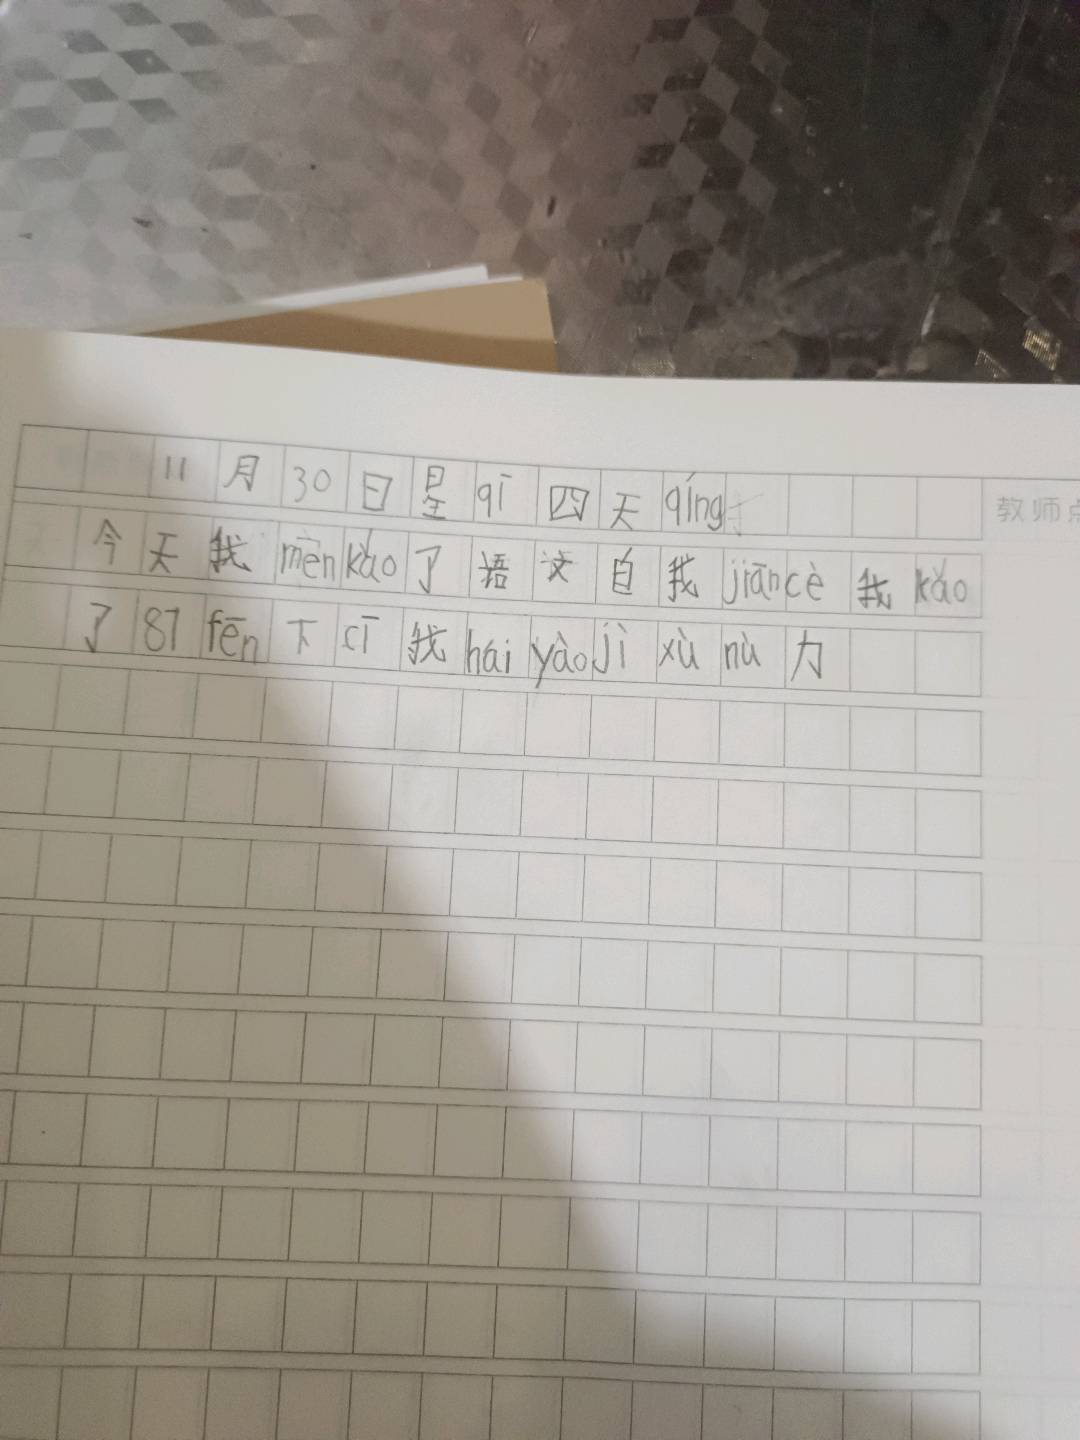 11月30日星qī四天qíng
教师点
今天我mēnkǎo了语文自我jiāncè我kǎo
了87fēn下cī我háiyàojìxùnù力